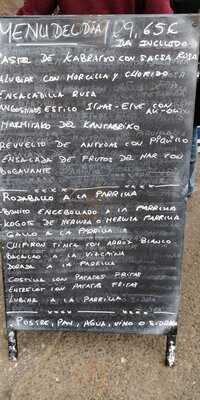 MENU DEL DIA 29,65€
IVA INCLUIDO
PASTEL DE KABRATXO CON SALSA ROSA
ALUBIAS CON MORCILLA Y CHORIZO
ENSALADILLA RUSA
LANGOSTINOS ESTILO
CON
MARMITAKO DEL KANTABRIKO
REVUELTO DE ANTXOAS CON
ENSALADA DE FRUTOS DEL MAR CON
BOGAVANTE
RODABALLO A LA PARRILLA
BONITO ENCEBOLLADO A LA PARRILLA
KOGOTE DE MERLUZA O MERLUZA PARRILLA
GALLO A LA PARRILLA
CHIPIRON TINTA CON ARROZ BLANCO
BACALAO A LA VIZCAINA
DORADA A LA PARRILLA
COSTILLA CON PATATAS FRITAS
ENTRECOT CON PATATAS FRITAS
LUBINA A LA PARRILLA
POSTRE, PAN, AGUA, VINO O SIDRA